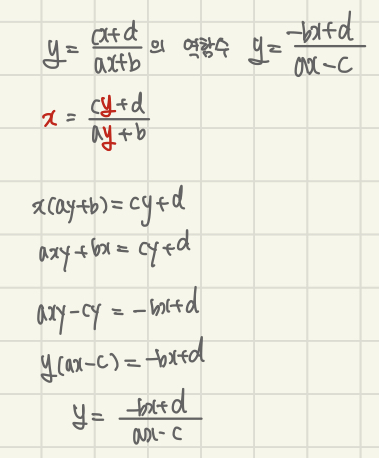 y = (cx+d)/(ax+b) 의 역함수 y = (-bx+d)/(ax-c)
x = (cy+d)/(ay+b)
x(ay+b) = cy+d
axy+bx = cy+d
axy-cy = -bx+d
y(ax-c) = -bx+d
y = (-bx+d)/(ax-c)